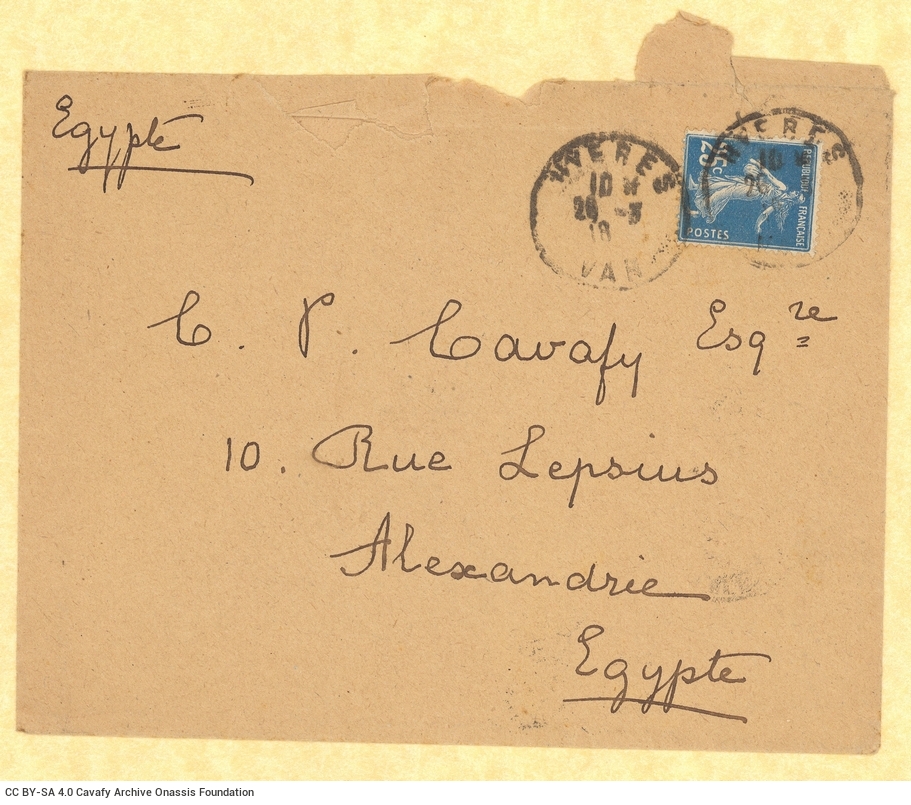 Egypte
HYERES
10
26 -3
18
VAR
HYERES
10
26
25c
REPUBLIQUE FRANÇAISE
POSTES
C. P. Cavafy Esqre
10. Rue Lepsius
Alexandrie
Egypte
CC BY-SA 4.0 Cavafy Archive Onassis Foundation